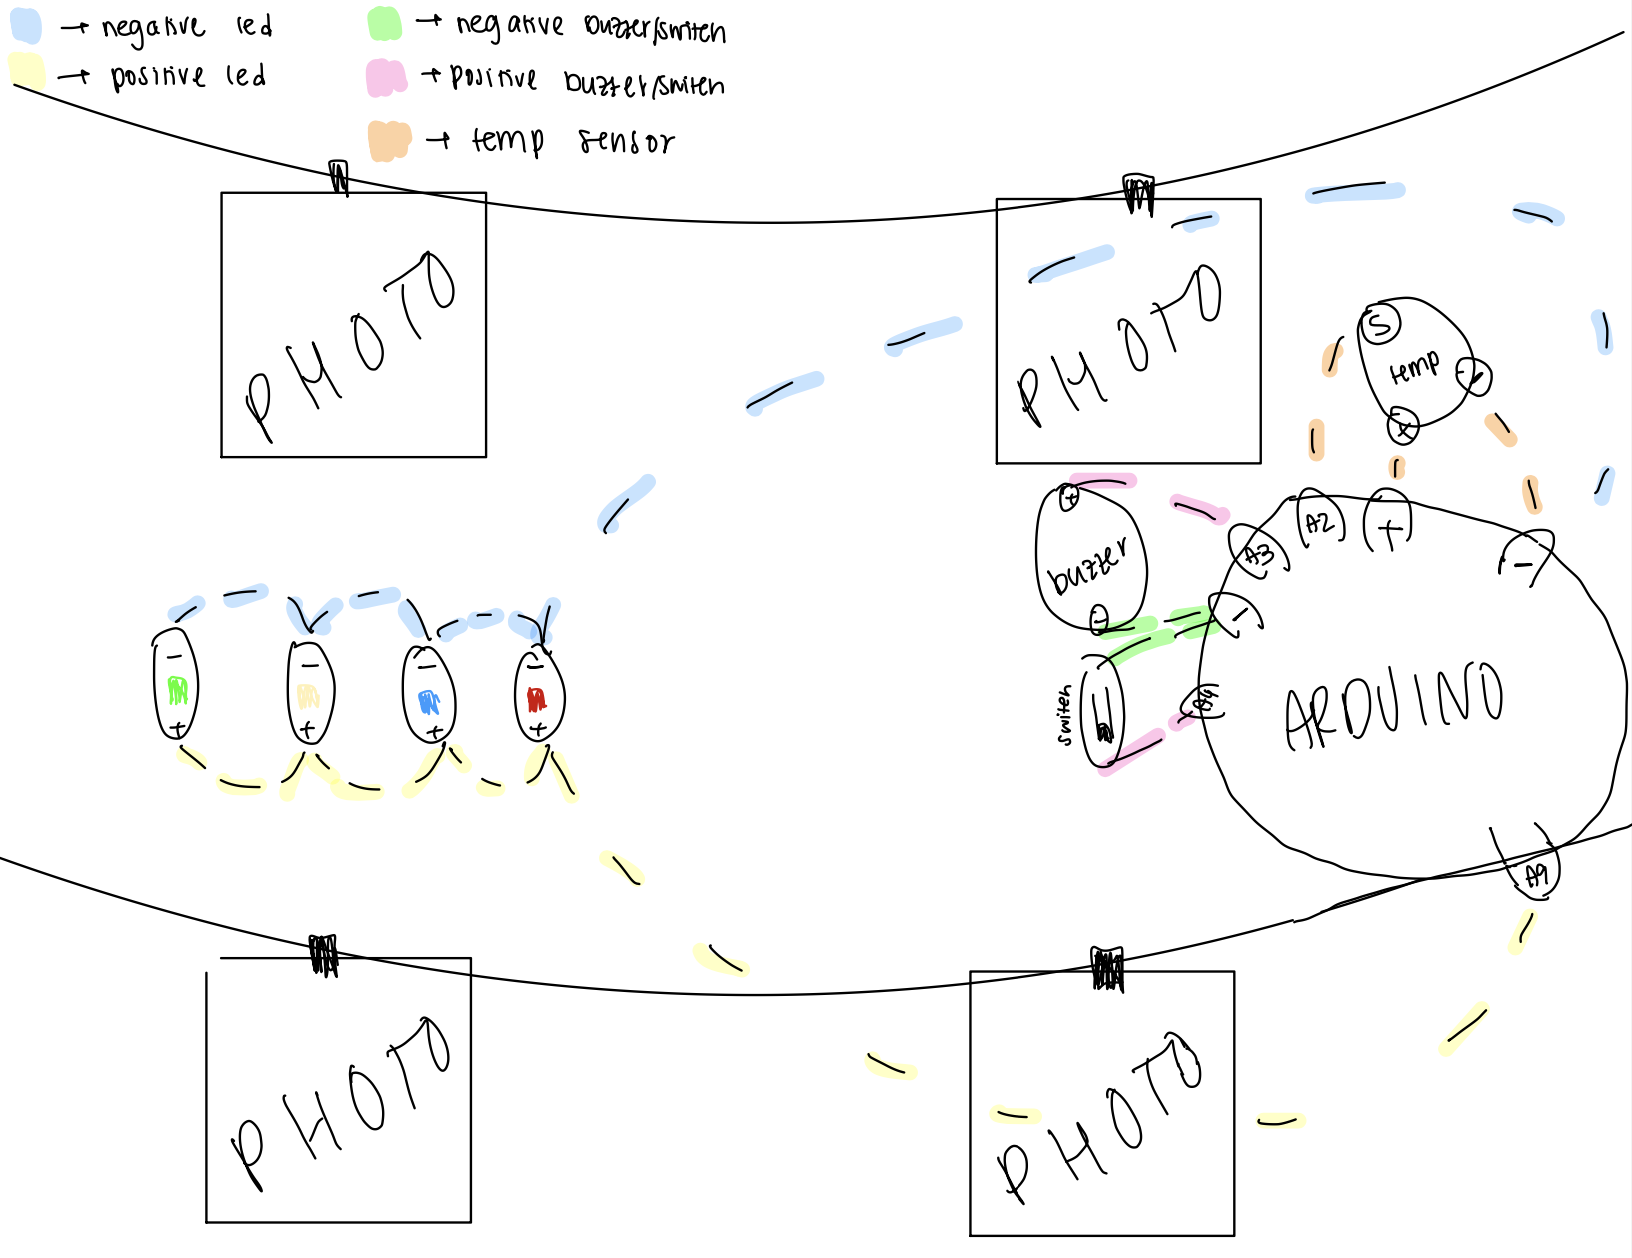 → negative led
→ positive led
→ negative buzzer/switch
→ positive buzzer/switch
→ temp sensor
PHOTO
PHOTO
S
temp
-
+
+
buzzer
-
A3
A2
+
-
-
switch
A4
ARDUINO
A9
-
+
-
+
-
+
-
+
PHOTO
PHOTO